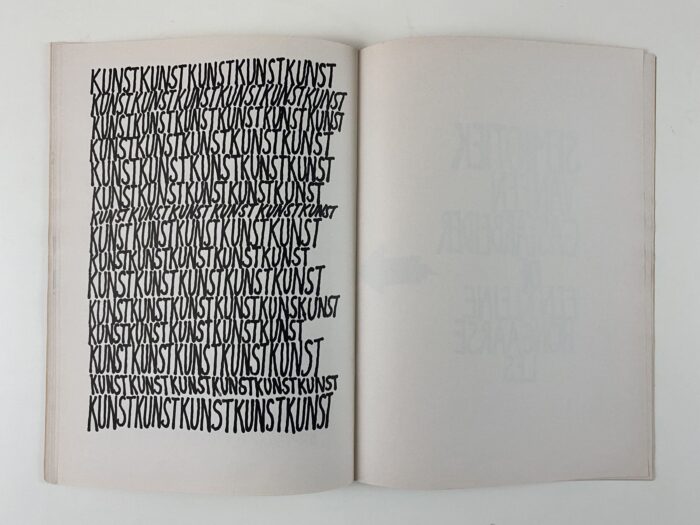 KUNSTKUNSTKUNSTKUNSTKUNST
KUNSTKUNSTKUNSTKUNSTKUNSTKUNST
KUNSTKUNSTKUNSTKUNSTKUNSTKUNST
KUNSTKUNSTKUNSTKUNSTKUNST
KUNSTKUNSTKUNSTKUNSTKUNST
KUNSTKUNSTKUNSTKUNSTKUNST
KUNSTKUNSTKUNSTKUNSTKUNST
KUNSTKUNSTKUNSTKUNSTKUNST
KUNSTKUNSTKUNSTKUNSTKUNST
KUNSTKUNSTKUNSTKUNSTKUNST
KUNSTKUNSTKUNSTKUNSTKUNSKUNST
KUNSTKUNSTKUNSTKUNSTKUNST
KUNSTKUNSTKUNSTKUNSTKUNST
KUNSTKUNSTKUNSTKUNSTKUNSTKUNST
KUNSTKUNSTKUNSTKUNSTKUNST